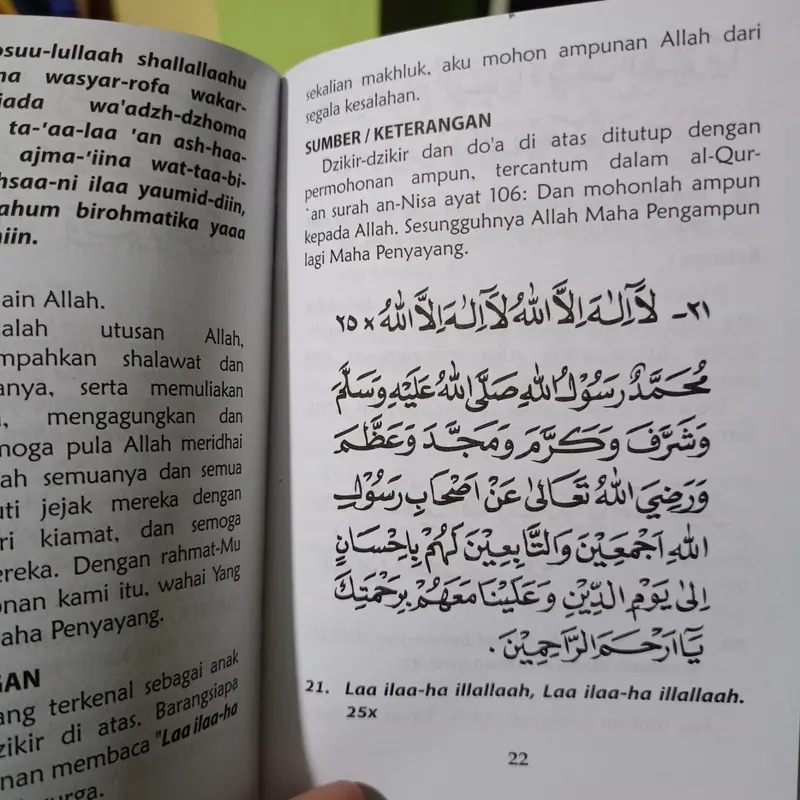 osuu-lullaah shallallaahu
na wasyar-rofa wakar-
jada wa'adzh-dzhoma
ta-'aa-laa 'an ash-haa-
ajma-'iina wat-taa-bi-
hsaa-ni ilaa yaumid-diin,
ahum birohmatika yaaa
niin.
ain Allah.
alah utusan Allah,
mpahkan shalawat dan
anya, serta memuliakan
mengagungkan dan
moga pula Allah meridhai
ah semuanya dan semua
uti jejak mereka dengan
ri kiamat, dan semoga
ereka. Dengan rahmat-Mu
onan kami itu, wahai Yang
aha Penyayang.
GAN
ang terkenal sebagai anak
zikir di atas. Barangsiapa
nan membaca "Laa ilaa-ha
urga.
sekalian makhluk, aku mohon ampunan Allah dari
segala kesalahan.
SUMBER / KETERANGAN
Dzikir-dzikir dan do'a di atas ditutup dengan
permohonan ampun, tercantum dalam al-Qur-
`an surah an-Nisa ayat 106: Dan mohonlah ampun
kepada Allah. Sesungguhnya Allah Maha Pengampun
lagi Maha Penyayang.
٢١- لَآاِلٰهَ اِلَّا اللّٰهُ لَآاِلٰهَ اِلَّا اللّٰهُ × ٢٥
مُحَمَّدٌ رَسُوْلُ اللّٰهِ صَلَّى اللّٰهُ عَلَيْهِ وَسَلَّمَ
وَشَرَّفَ وَكَرَّمَ وَمَجَّدَ وَعَظَّمَ
وَرَضِيَ اللّٰهُ تَعَالٰى عَنْ اَصْحَابِ رَسُوْلِ
اللّٰهِ اَجْمَعِيْنَ وَالتَّابِعِيْنَ لَهُمْ بِاِحْسَانٍ
اِلٰى يَوْمِ الدِّيْنِ وَعَلَيْنَا مَعَهُمْ بِرَحْمَتِكَ
يَآاَرْحَمَ الرَّاحِمِيْنَ.
21. Laa ilaa-ha illallaah, Laa ilaa-ha illallaah.
25x
22